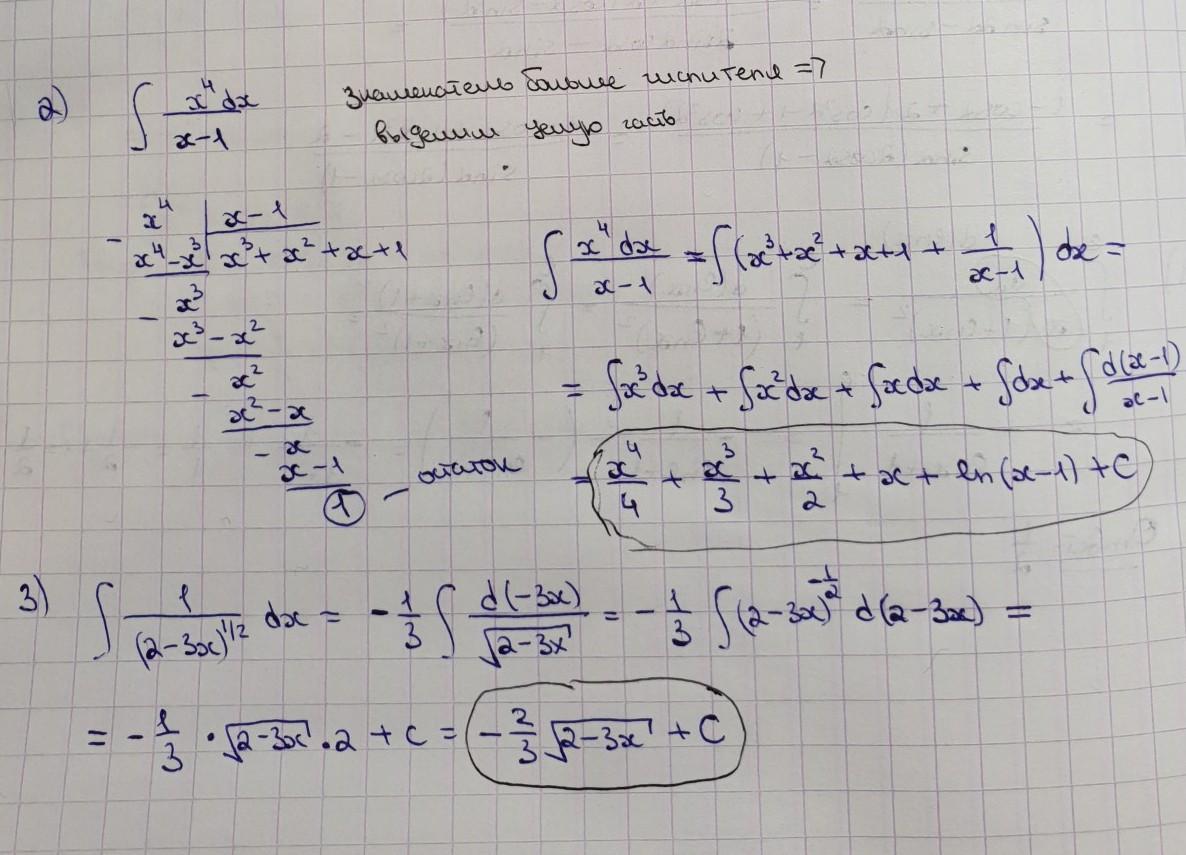 2) ∫ x⁴dx / (x-1) Знаменатель больше числителя =>
выделим целую часть
x⁴ | x-1
- x⁴-x³ | x³+x²+x+1
x³
- x³-x²
x²
- x²-x
x
- x-1
1 - остаток
∫ x⁴dx / (x-1) = ∫(x³+x²+x+1 + 1/(x-1)) dx =
= ∫x³dx + ∫x²dx + ∫xdx + ∫dx + ∫ d(x-1)/(x-1)
= x⁴/4 + x³/3 + x²/2 + x + ln(x-1) + C
3) ∫ 1/(2-3x)^(1/2) dx = -1/3 ∫ d(-3x)/√(2-3x) = -1/3 ∫(2-3x)^(-1/2) d(2-3x) =
= -1/3 · √(2-3x) · 2 + c = -2/3 √(2-3x) + C